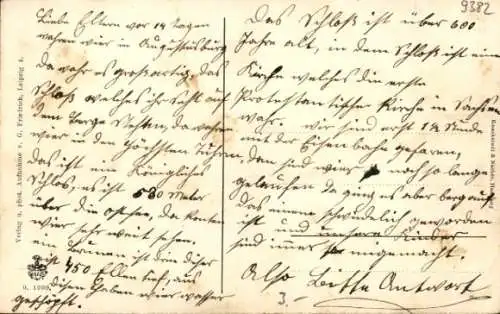 9382
Liebe Eltern vor 14 Tagen
waren wir in Augustusburg
da wahr es großartig, das
Schloß welches ihr seht auf
dem Berge Stehen, da waren
wir in den höchsten Türmen
das ist ein Königliches
Schlos, es ist 530 Meter
über die Ostsee, da konten
wir sehr weit sehen.
ein Brunen ist in dieser
ist 450 Ellen tief, aus
diesen haben wir wasser
geschöpft.
Das Schloß ist über 600
Jahre alt, in dem Schloß ist eine
Kirche welches die erste
Protestantische Kirche in Sachsen
war. wir sind erst 1½ Stunde
mit der Eisenbahn gefaren,
dan sind wir noch so lange
gelaufen da ging es aber berg auf
das einen schwindlich geworden
ist und unsere Kinder
sind imer mitgemacht.
Also Bitte Antwort
3.-
Verlag u. phot. Aufnahme v. G. Friedrich, Leipzig 4.